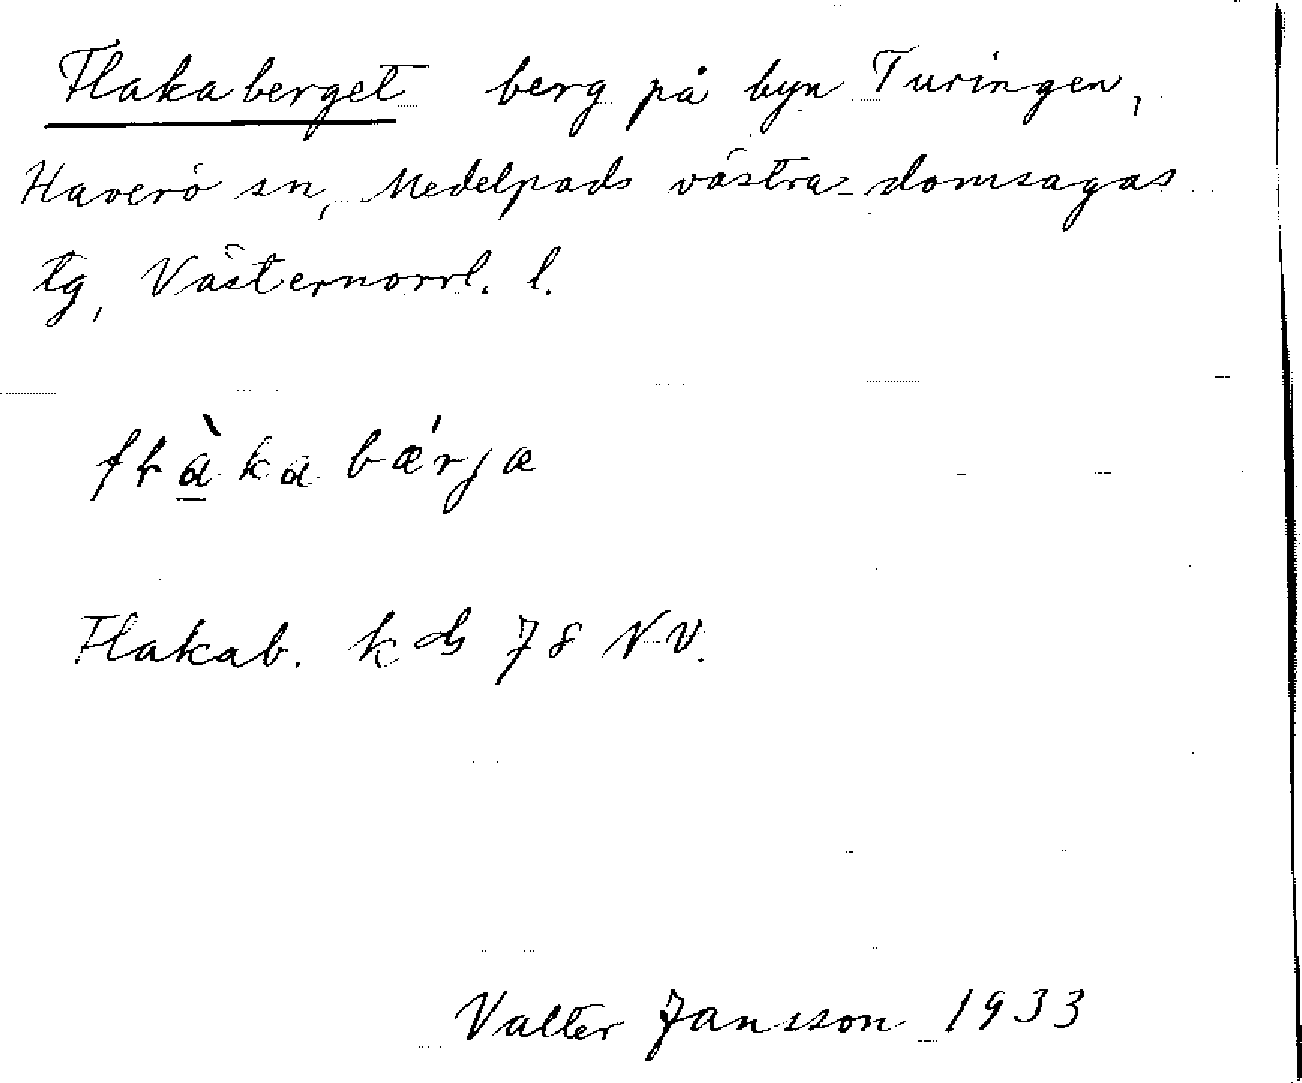 Flakaberget berg på byn Turingen,
Haverö sn, Medelpads västra domsagas
tg, Västernorrl. l.
flàka bǽrjæ
Flakab. kbl 78 NV.
Valter Jansson 1933